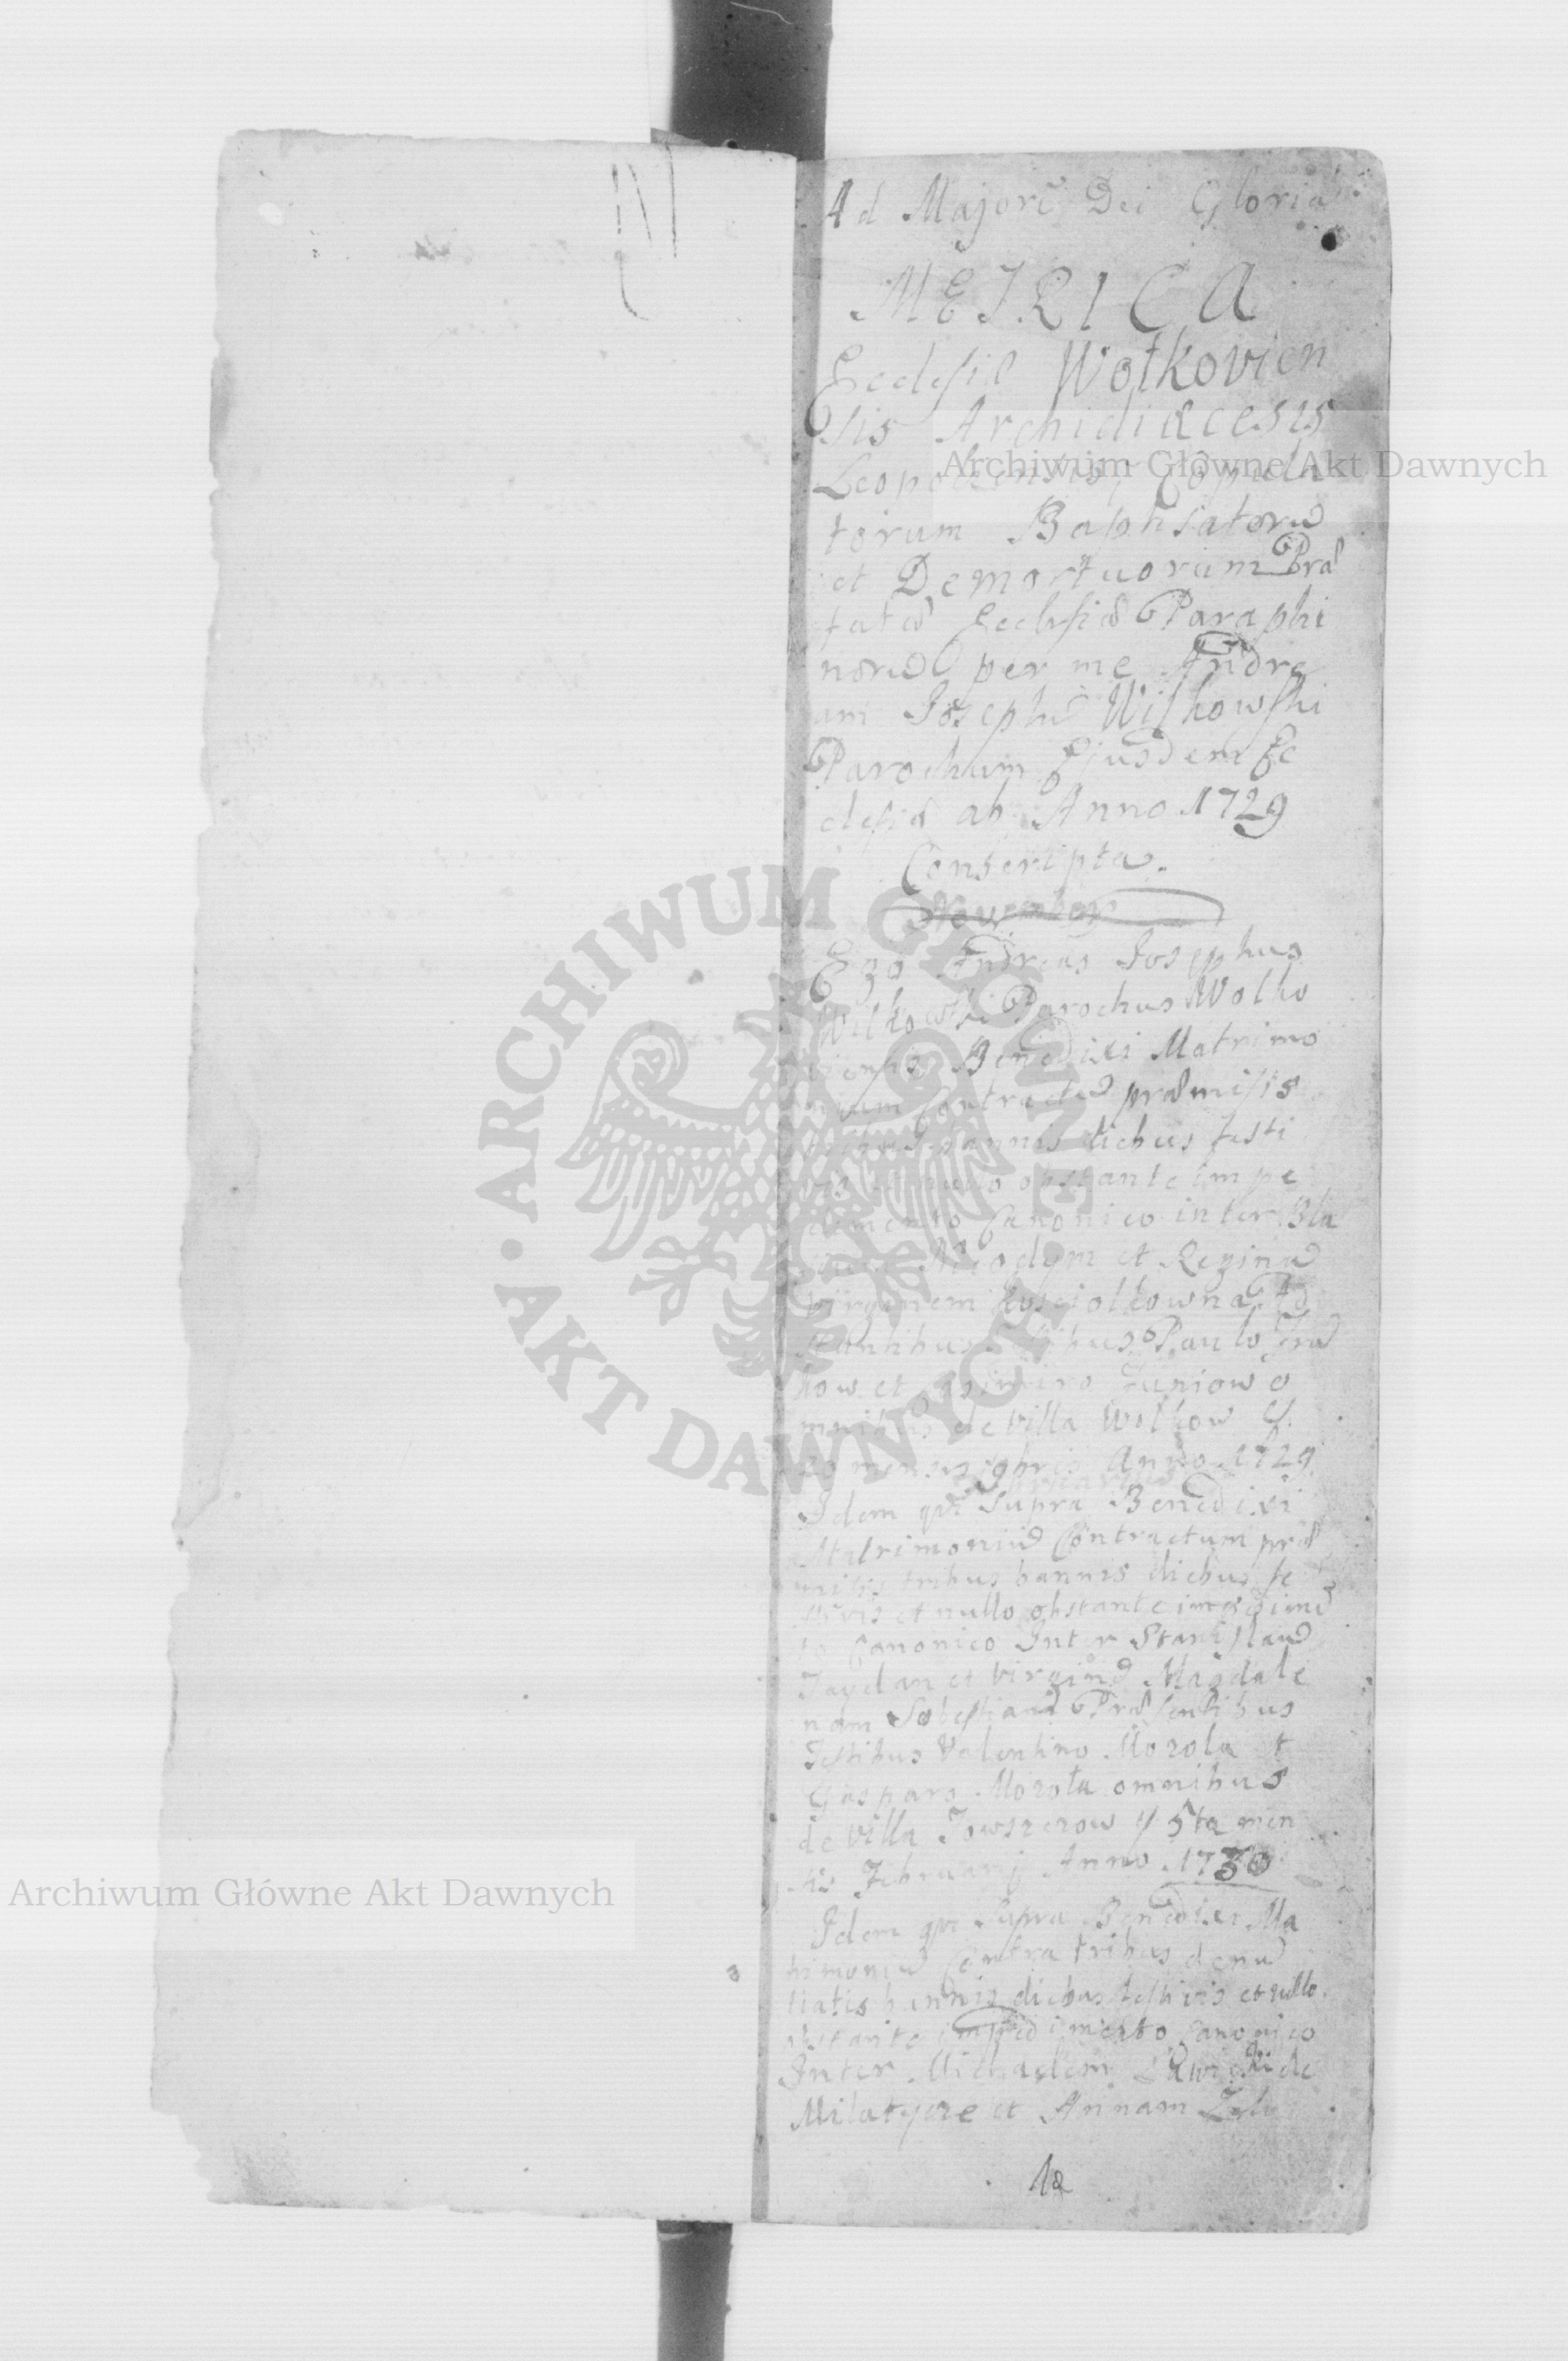 Ad Majorē Dei Gloriā
METRICA
Ecclesiæ Wołkovien
sis Archidiæcesis
Leopoliensis, Copula
torum Baptisatorū
et Demortuorum Præ
fatæ Ecclesiæ Paraphi
norū per me Andre
am Josephū Wilkowski
Parochum Ejusdem Ec
clesiæ ab Anno 1729
Conscripta.
November
Ego Andreas Josephus
Wilkowski Parochus Wolko
viensis Benedixi Matrimo
nium Contractū præmisis
bannis diebus festi
vis et nullo obstante impe
dimento Canonico inter Bla
et Reginā
Virginem Kosciolkowna Ad
stantibus Testibus Paulo
kow et Casimiro Juniow o
mnibus de Villa Wolkow
20 mensis 9bris Anno 1729
Februarius
Idem qui Supra Benedixi
Matrimoniū Contractum præ
misis tribus bannis diebus fe
stivis et nullo obstante impedimē
to Canonico Inter Stanislaū
Taydan et Virginē Magdale
nam Præsentibus
Testibus Valentino Mozola et
Gasparo Mozoła omnibus
de Villa Towszczow 5ta men
sis Februarij Anno 1730
Idem qui Supra Benedixi Ma
trimoniū Contra tribus denū
tiatis bannis diebus festivis et nullo
obstante impedimento Canonico
Inter Michaelem de
Milatycze et Annam
1a
Archiwum Główne Akt Dawnych
ARCHIWUM GŁÓWNE AKT DAWNYCH
Archiwum Główne Akt Dawnych